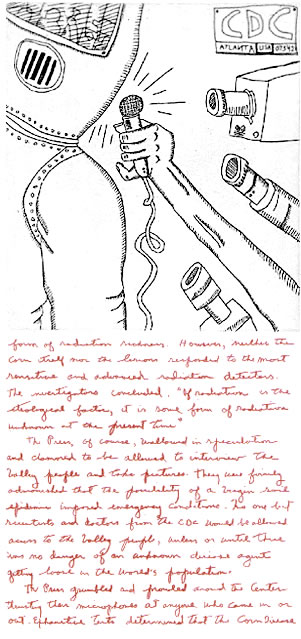 CDC
ATLANTA USA
form of radiation sickness. However, neither the
corn itself nor the humans responded to the most
sensitive and advanced radiation detectors.
The investigators concluded, "If radiation is the
etiological factor, it is some form of radiation
unknown at the present time"
The Press, of course, wallowed in speculation
and clamored to be allowed to interview the
Valley people and take pictures. They were firmly
admonished that the possibility of a
epidemic imposed emergency conditions. No one but
scientists and doctors from the CDC would be allowed
access to the Valley people, unless or until there
was no danger of an unknown disease agent
getting loose in the World's population.
The Press grumbled and prowled around the Center
thrusting their microphones at anyone who came in or
out. Exhaustive Tests determined that the Corn Disease